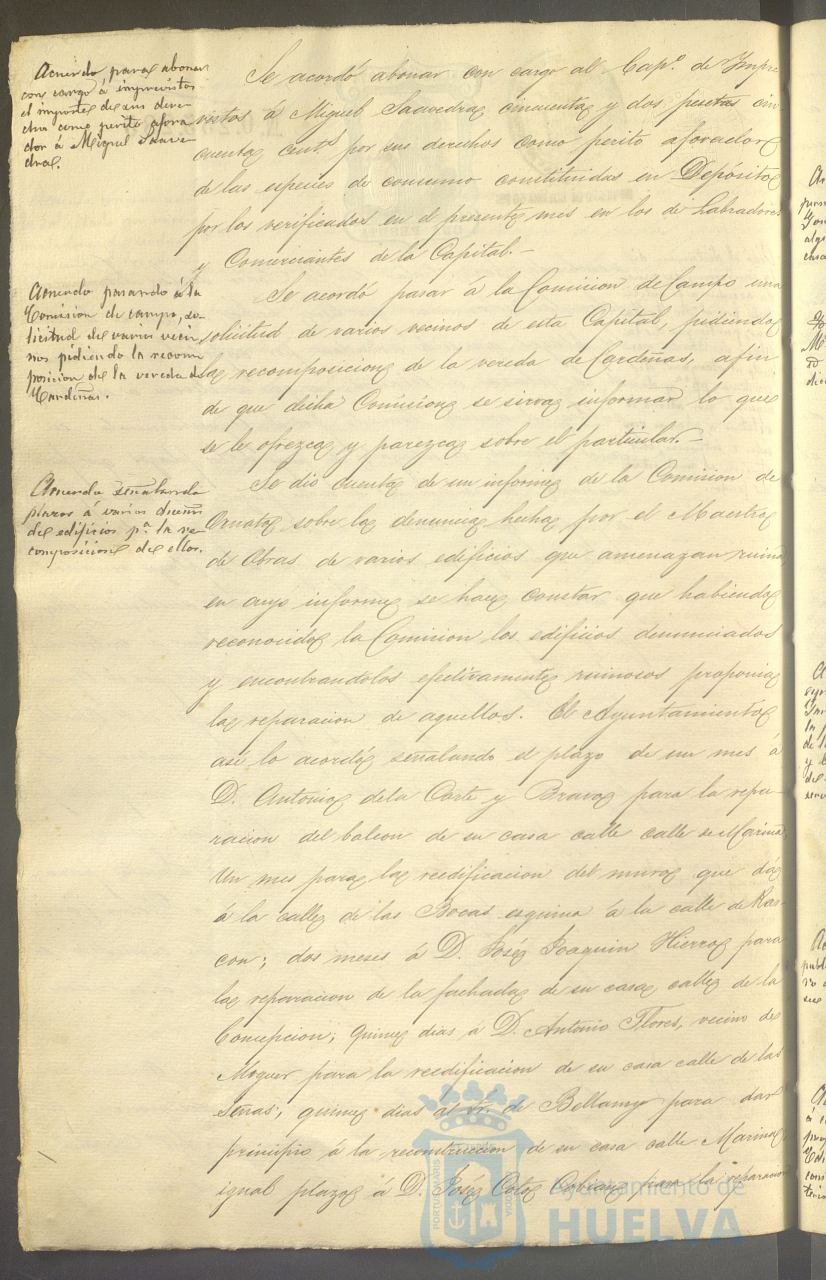 Acuerdo para abonar
con cargo á imprevistos
el importe de sus dere
chos como perito afora
dor á Miguel Saave
dra.
Se acordó abonar con cargo al Cap.º de Impre
vistos á Miguel Saavedra cincuenta y dos pesetas cin
cuenta cent.s por sus derechos como perito aforador
de las especies de consumo constituidas en Depósito
por los verificados en el presente mes en los de Labradores
y Comerciantes de la Capital.—
Acuerdo pasando á la
Comision de campo, so-
licitud de varios veci
nos pidiendo la recom
posicion de la vereda de
Cardeñas.
Se acordó pasar á la Comision de Campo una
solicitud de varios vecinos de esta Capital, pidiendo
la recomposicion de la vereda de Cardeñas, afin
de que dicha Comision se sirva informar lo que
se le ofrezca y parezca sobre el particular.—
Acuerdo señalando
plazos á varios dueños
de edificios p.ª la re
composicion de ellos.
Se dió cuenta de un informe de la Comision de
Ornato sobre la denuncia hecha por el Maestro
de Obras de varios edificios que amenazan ruina
en cuyo informe se hace constar que habiendo
reconocido la Comision los edificios denunciados
y encontrandolos efectivamente ruinosos proponia
la reparacion de aquellos. El Ayuntamiento
asi lo acordó señalando el plazo de un mes á
D. Antonio de la Corte y Bravo para la repa-
racion del balcon de su casa calle calle de Marina,
Un mes para la reedificacion del muro que dá
á la calle de las Bocas esquina á la calle de Ras-
con; dos meses á D. José Joaquin Hierro para
la reparacion de la fachada de su casa calle de la
Concepcion; quince dias á D. Antonio Flores, vecino de
Moguer para la reedificacion de su casa calle de las
Señas; quince dias al Sr. de Bellamy para dar
principio á la reconstruccion de su casa calle Marina,
igual plazo á D. José Coto para la reparacion
Ayuntamiento de
HUELVA